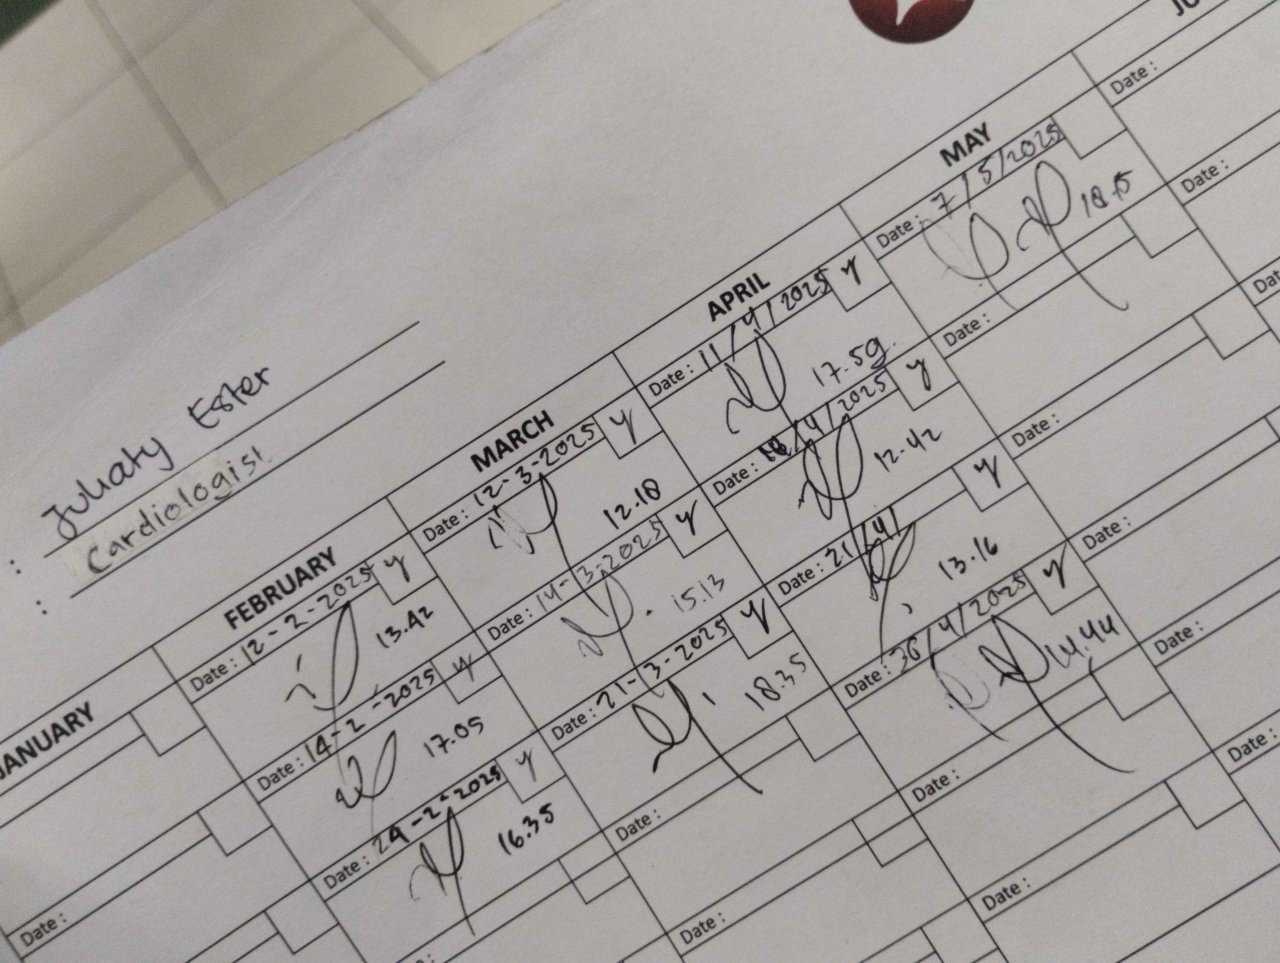 : Juliaty Ester
: Cardiologist
JANUARY
Date :
FEBRUARY
Date : 12-2-2025 y
13.42
Date : 14-2-2025 y
17.05
Date : 24-2-2025 y
16.35
Date :
MARCH
Date : 12-3-2025 y
12.18
Date : 14-3-2025 y
15.13
Date : 21-3-2025 y
18.35
Date :
Date :
APRIL
Date : 11/4/2025 y
17.59
Date : /4/2025 y
12.42
Date : 21/4/ y
13.16
Date : 30/4/2025 y
14.44
Date :
Date :
MAY
Date : 7/5/2025
18.15
Date :
Date :
Date :
Date :
Date :
Date :
Date :